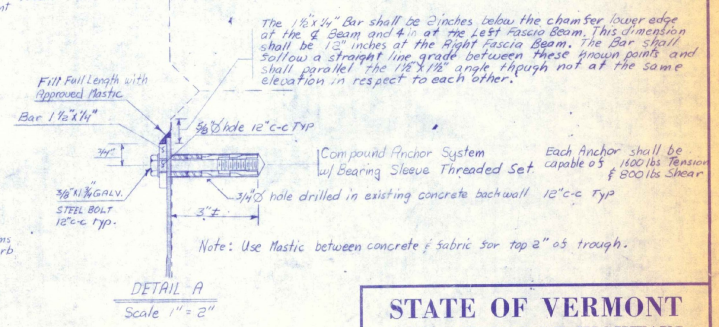 nt
The 1½"x¼" Bar shall be 2inches below the chamfer lower edge
at the ℄ Beam and 4in at the Left Fascia Beam. This dimension
shall be 12" inches at the Right Fascia Beam. The Bar shall
follow a straight line grade between these known points and
shall parallel the 1½"x1½" angle though not at the same
elevation in respect to each other.
Fill Full Length with
Approved Mastic
Bar 1½"x¼"
5/8"Ø hole 12"c-c TYP
3/4"
3/8"x1¾" GALV.
STEEL BOLT
12"c-c Typ.
Compound Anchor System
w/ Bearing Sleeve Threaded Set
Each Anchor shall be
capable of 1600 lbs Tension
& 800 lbs Shear
3/4"Ø hole drilled in existing concrete backwall 12"c-c Typ
3"±
Note: Use Mastic between concrete & fabric for top 2" of trough.
ms
rb
DETAIL A
Scale 1" = 2"
STATE OF VERMONT